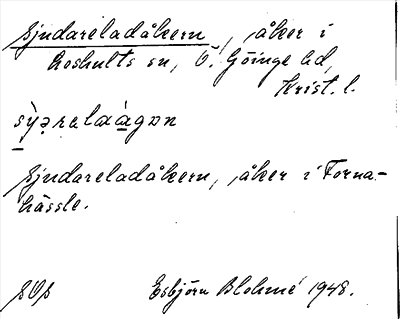 Sjudareladåkern, åker i
Loshults sn, Ö. Göinge hd,
Krist. l.
Sjudareladåkern, åker i Forna-
hässle.
Esbjörn Blohmé 1948.